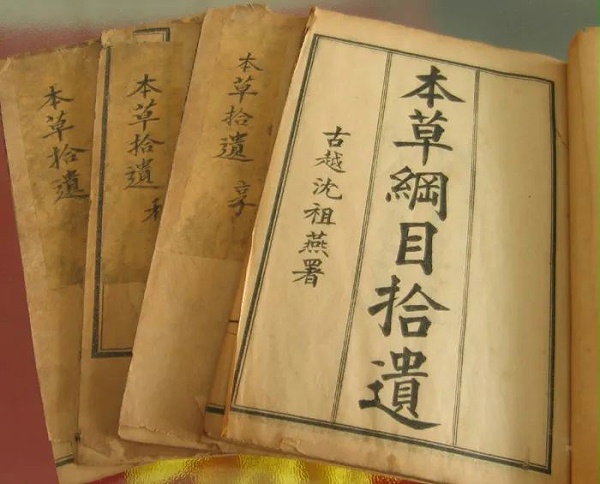 本草綱目拾遺
古越沈祖燕署
本草拾遺 享
本草拾遺 利
本草拾遺